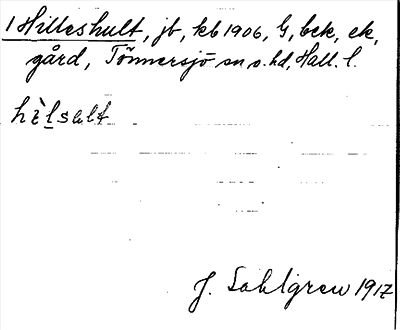 1 Hilleshult, jb, kb 1906, G, bek, ek,
gård, Tönnersjö sn o. hd, Hall. l.
J. Sahlgren 1917